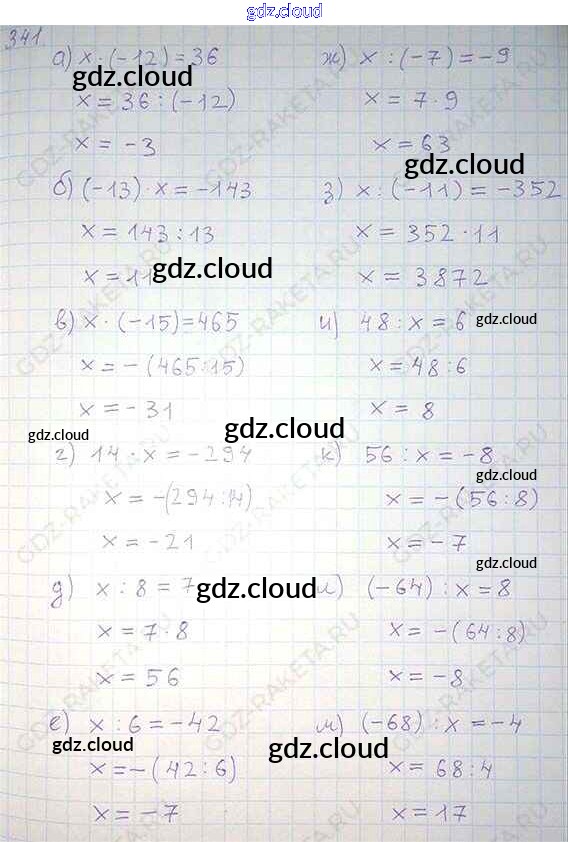 gdz.cloud
341.
а) x · (-12) = 36
gdz.cloud
x = 36 : (-12)
x = -3
б) (-13) · x = -143
x = 143 : 13
x = 11
gdz.cloud
в) x · (-15) = 465
x = - (465 : 15)
x = -31
gdz.cloud
gdz.cloud
г) 14 · x = -294
x = -(294 : 14)
x = -21
д) x : 8 = 7
gdz.cloud
x = 7 · 8
x = 56
е) x : 6 = -42
gdz.cloud
x = -(42 : 6)
x = -7
ж) x : (-7) = -9
x = 7 · 9
x = 63
gdz.cloud
з) x : (-11) = -352
x = 352 · 11
x = 3872
и) 48 : x = 6
gdz.cloud
x = 48 : 6
x = 8
к) 56 : x = -8
gdz.cloud
x = -(56 : 8)
x = -7
gdz.cloud
л) (-64) : x = 8
x = -(64 : 8)
x = -8
м) (-68) : x = -4
gdz.cloud
x = 68 : 4
x = 17
GDZ-RAKETA.RU
GDZ-RAKETA.RU
GDZ-RAKETA.RU
GDZ-RAKETA.RU
GDZ-RAKETA.RU
GDZ-RAKETA.RU